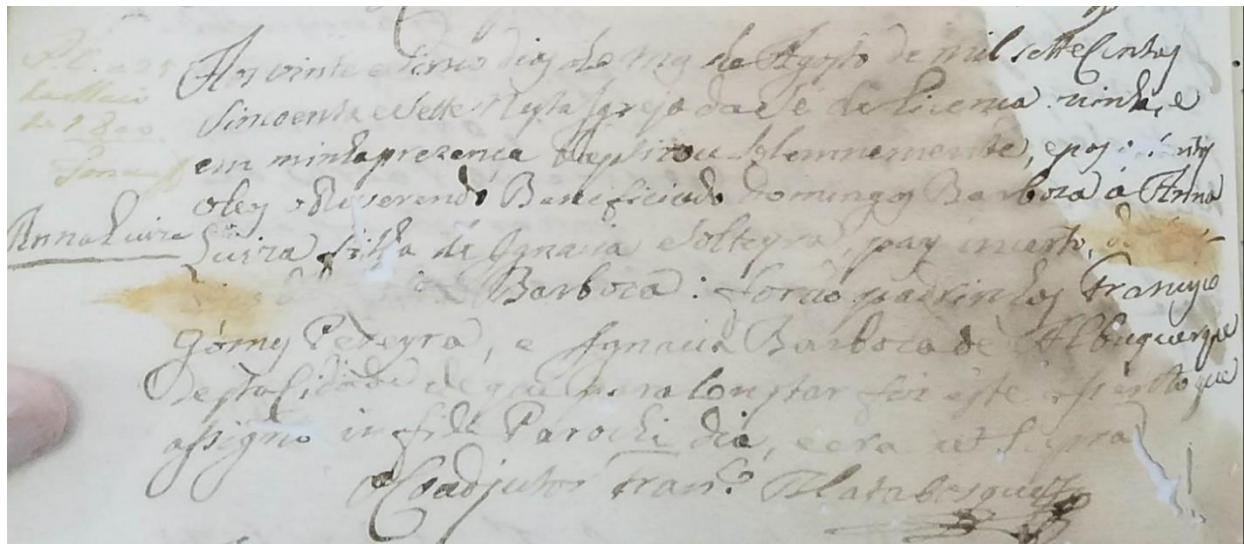 Aos vinte e sinco dias do mes de Agosto de mil sette Centos
Sincoenta e sette Nesta Igreja da Sé de Licença minha, e
em minha prezença baptizou solemnemente, e pos os santos
oleos o Reverendo Beneficiado Domingos Barboza á Anna
Anna Luiza
Luiza filha de Ignacia Solteyra, pay incerto,
Barboza: forão padrinhos Francisco
Gomes Pereyra, e Ignacia Barboza de Albuquerque
desta Cidade de que para Constar fiz este asento que
asigno in fide Parochi dia, e era ut supra
O Coadjutor Fran.co